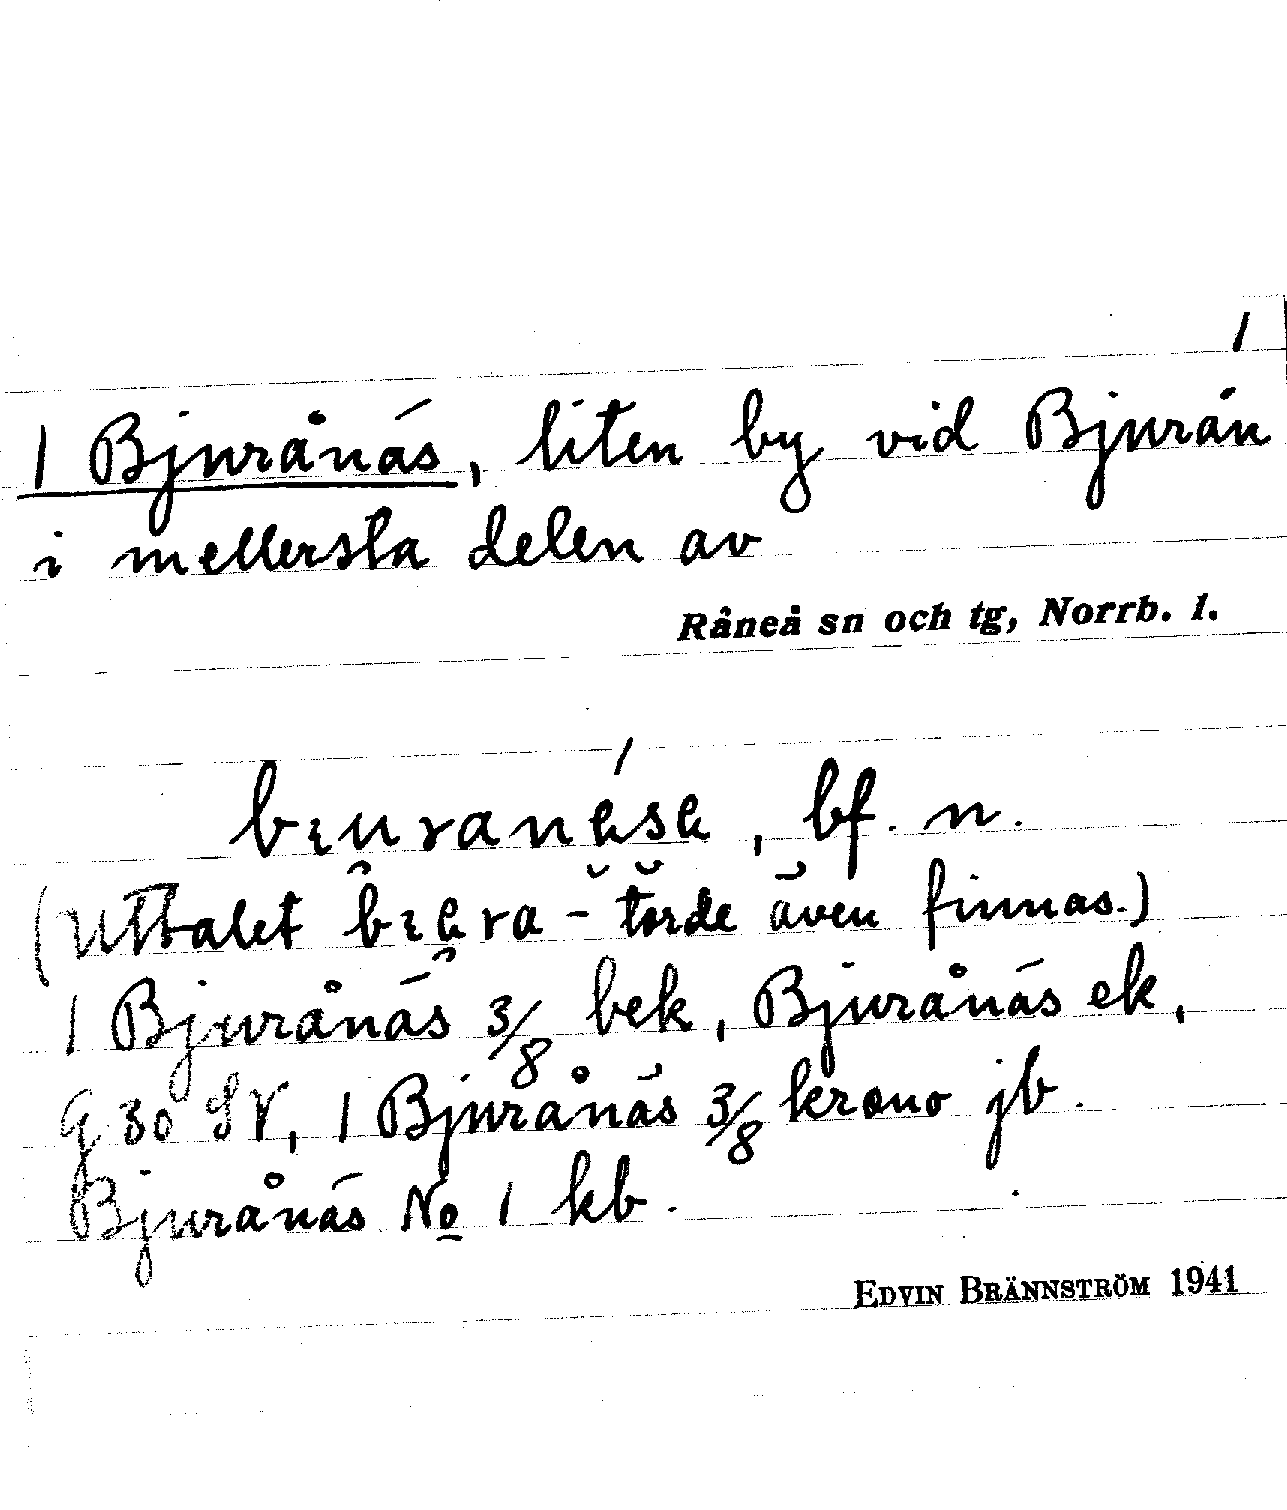 1
1 Bjurånäs, liten by vid Bjurån
i mellersta delen av
Råneå sn och tg, Norrb. l.
bf. n.
(Uttalet torde även finnas.)
1 Bjurånäs 3/8 bek, Bjurånäs ek,
g 30 SV, 1 Bjurånäs 3/8 krono jb.
Bjurånäs No 1 kb.
EDVIN BRÄNNSTRÖM 1941